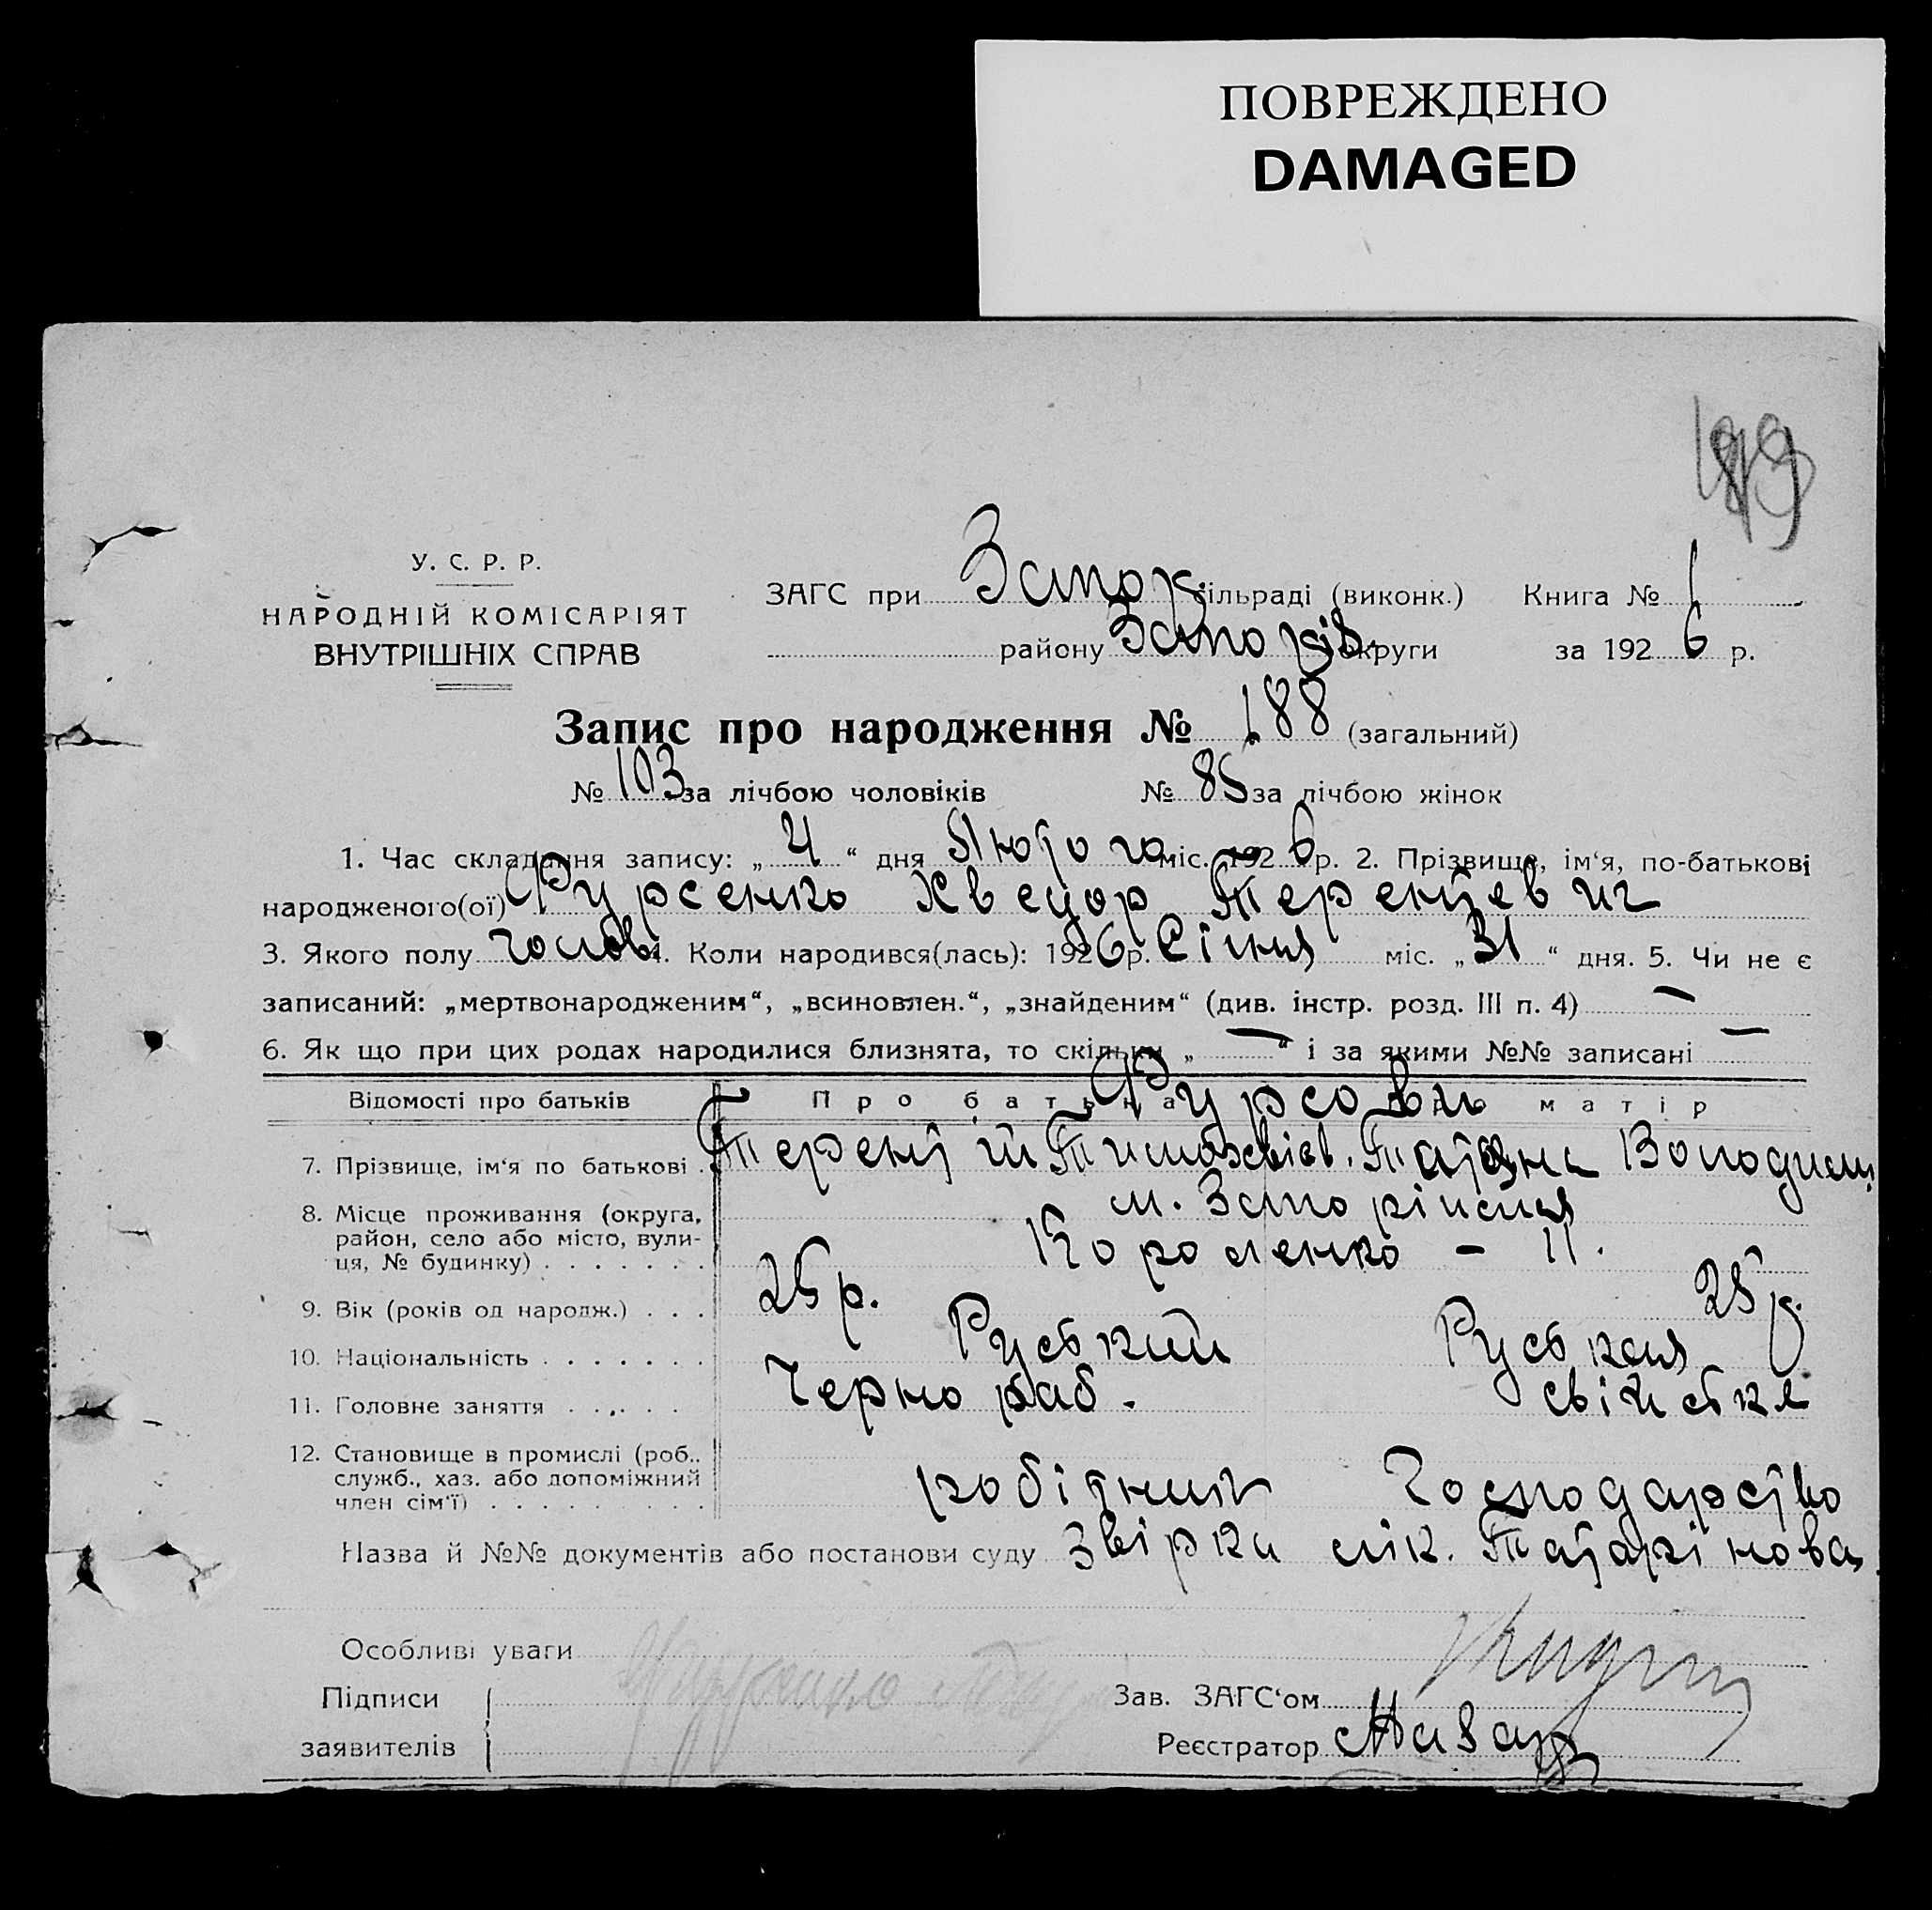 ПОВРЕЖДЕНО
DAMAGED
У. С. Р. Р.
НАРОДНІЙ КОМІСАРІЯТ
ВНУТРІШНІХ СПРАВ
ЗАГС при Запор. сільраді (виконк.) Книга № 1
району Запоріз. округи за 1926 р.
Запис про народження № 188 (загальний)
№ 103 за лічбою чоловіків № 85 за лічбою жінок
1. Час складання запису: „4“ дня Лютого міс. 1926 р. 2. Прізвище, ім‘я, по-батькові
народженого(ої) Фурсенко Хведор Терентьевич
3. Якого полу чолов. 4. Коли народився(лась): 1926 р. Січня міс. „31“ дня. 5. Чи не є
записаний: „мертвонародженим“, „всиновлен.“, „знайденим“ (див. інстр. розд. III п. 4) —
6. Як що при цих родах народилися близнята, то скільки „—“ і за якими №№ записані —
Відомості про батьків Про батька Про матір
7. Прізвище, ім‘я по батькові Терентій Тимохвієв. Татяна Володим.
8. Місце проживання (округа, м. Запоріжжя
район, село або місто, вули- Короленко - 11.
ця, № будинку)
9. Вік (років од народж.) 25 р. 25 р.
10. Національність Руський Руськая
11. Головне заняття Чернораб. свійське
12. Становище в промислі (роб..
служб., хаз. або допоміжний робітник Господарство
член сім‘ї)
Назва й №№ документів або постанови суду Звірки лік. Татарінова
Особливі уваги
Підписи
Зав. ЗАГС‘ом
заявителів
Реєстратор